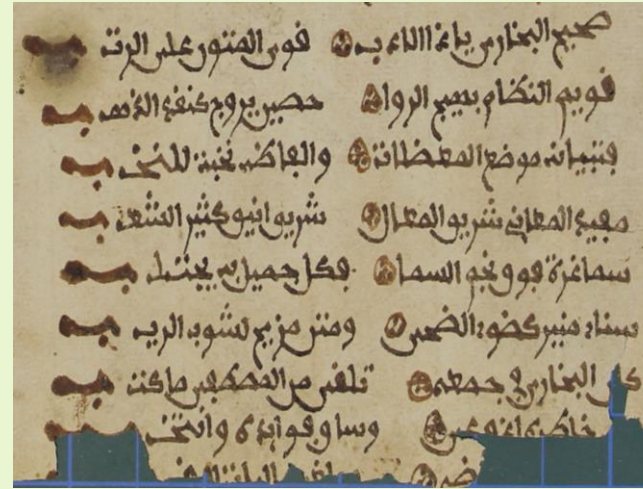 صحيح البخارى ياذا الادب قوى المتون على الرتب
قويم النظام بهيج الروا حصين يروج كنقد الذهب
فتبيانه موضح المعضلات والفاظه نخبة للنخب
مفيد المعانى شريف المعال شريف انيق كثير الشعب
سما عزه فوق نجم السما فكل جميل به يجتلب
سناه منير كضوء الضحى ومتن مزيح لشوب الريب
كان البخارى فى جمعه تلقى من المصطفى ما كتب
خاطره اذ وعى وساق فوايده وانتخب